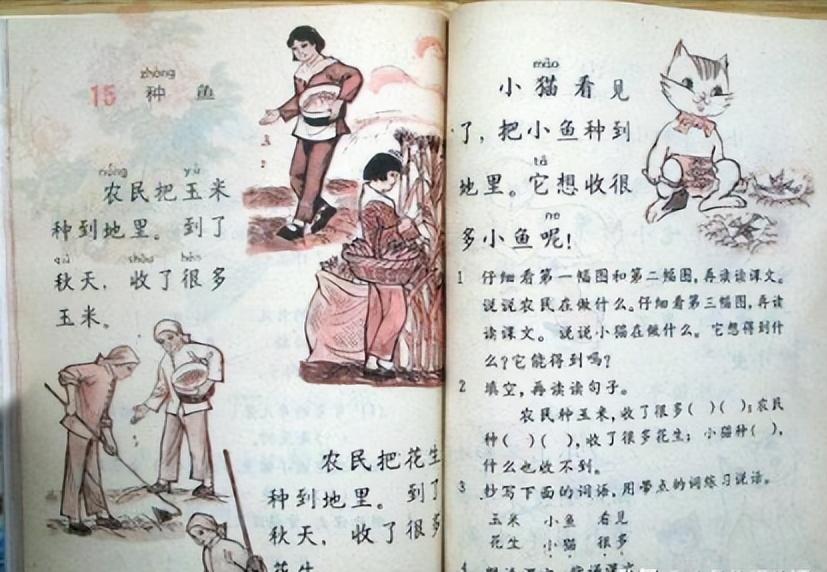 zhòng
15 种 鱼
nóng yù
农民把玉米
种到地里。到了
qiū shōu hěn
秋天，收了很多
玉米。
农民把花生
种到地里。到了
秋天，收了很多
花生
māo
小猫看见
了，把小鱼种到
tā
地里。它想收很
ne
多小鱼呢！
1 仔细看第一幅图和第二幅图，再读读课文。
说说农民在做什么。仔细看第三幅图，再读
读课文。说说小猫在做什么。它想得到什
么？它能得到吗？
2 填空，再读读句子。
农民种玉米，收了很多( )( )；农民
种( )( )，收了很多花生；小猫种( )，
什么也收不到。
3 抄写下面的词语，用带点的词练习说话。
玉米 小鱼 看见
花生 小猫 很多
4 课文